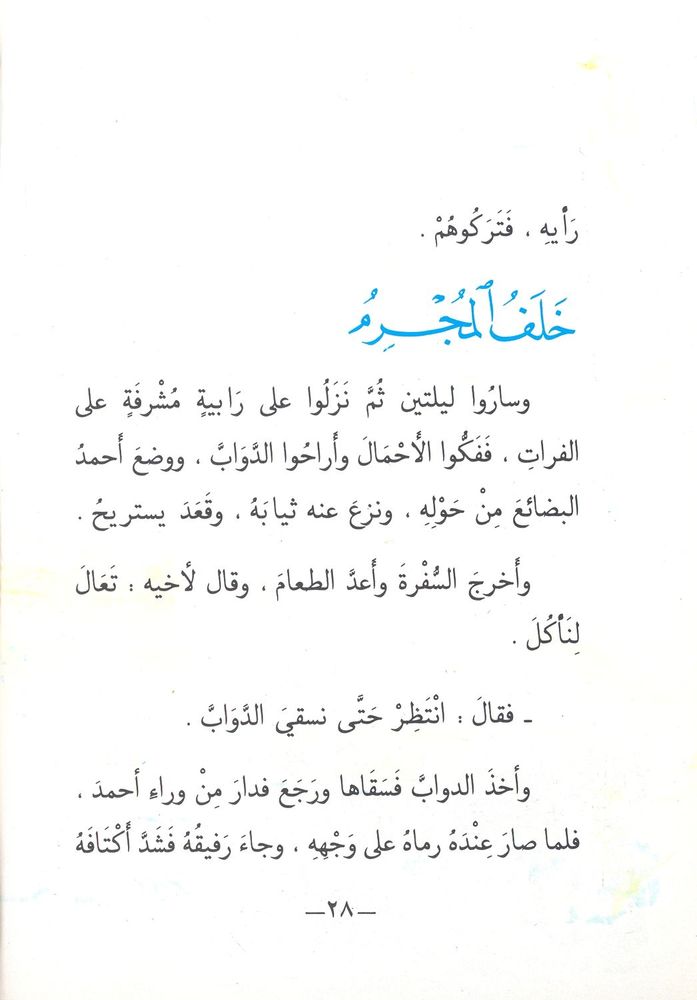 رَأْيِهِ ، فَتَرَكُوهُمْ .
خَلَفُ ٱلمُجْرِمُ
وسارُوا ليلتين ثُمَّ نَزَلُوا على رَابيةٍ مُشْرفَةٍ على
الفراتِ ، فَفَكُّوا الأَحْمَالَ وأَراحُوا الدَّوَابَّ ، ووضعَ أَحمدُ
البضائعَ مِنْ حَوْلِهِ ، ونزعَ عنه ثيابَهُ ، وقَعَدَ يستريحُ .
وأَخرجَ السُّفْرةَ وأَعدَّ الطعامَ ، وقال لأخيه : تَعَالَ
لِنَأْكُلَ .
ـ فقالَ : انْتَظِرْ حَتَّى نسقيَ الدَّوَابَّ .
وأخذَ الدوابَّ فَسَقَاها ورَجَعَ فدارَ مِنْ وراءِ أحمدَ ،
فلما صارَ عِنْدَهُ رماهُ على وَجْهِهِ ، وجاءَ رَفيقُهُ فَشَدَّ أَكْتَافَهُ
—٢٨—